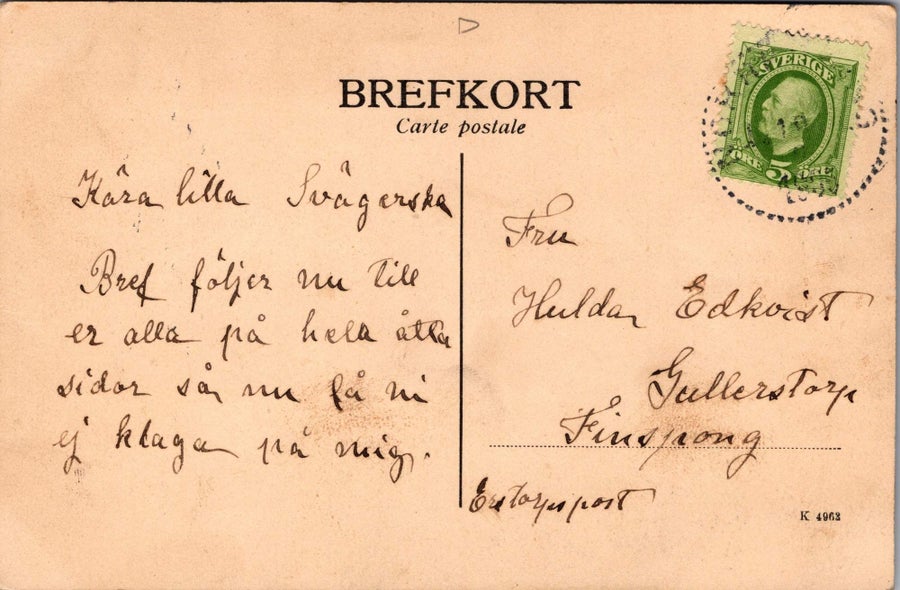 BREFKORT
Carte postale
SVERIGE
5
ÖRE ÖRE
Kära lilla Svägerska
Bref följer nu till
er alla på hela åtta
sidor så nu få ni
ej klaga på mig.
Fru
Hulda Edkvist
Gullerstorp
Finspong
K 4963